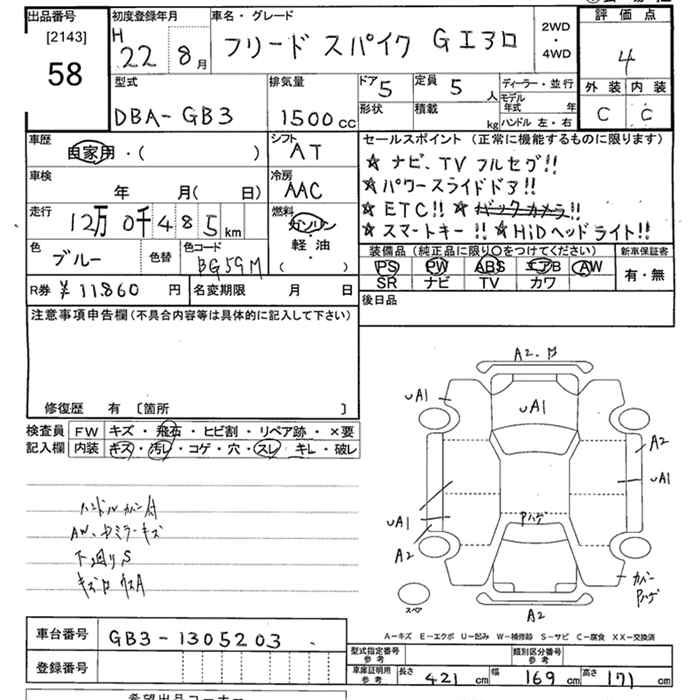 出品番号
[2143]
58
初度登録年月
H
22 8月
車名・グレード
フリード スパイク GIエアロ
2WD
・
4WD
評価点
4
外装 内装
C C
型式
DBA-GB3
排気量
1500cc
ドア 5
定員 5人
形状
積載 kg
ディーラー・並行
モデル年式 年
ハンドル 左・右
車歴
自家用・( )
シフト
AT
車検
年 月( 日)
冷房
AAC
走行
12万0千485km
燃料
ガソリン
軽油
( )
色
ブルー
色替
色コード
BG59M
R券 ¥11860円
名変期限 月 日
セールスポイント (正常に機能するものに限ります)
☆ナビ、TVフルセグ!!
☆パワースライドドア!!
☆ETC!! ☆バックカメラ!!
☆スマートキー!! ☆HiDヘッドライト!!
装備品 (純正品に限り○をつけてください)
PS PW ABS エアB AW
SR ナビ TV カワ
新車保証書
有・無
後日品
注意事項申告欄(不具合内容等は具体的に記入して下さい)
修復歴 有 〔箇所 〕
検査員
記入欄
FW キズ・飛石・ヒビ割・リペア跡・×要
内装 キズ・汚レ・コゲ・穴・スレ・キレ・破レ
ハンドルカバー付
AW、ドアミラーキズ
下廻りS
A2.
UA1
UA1
A2
UA1
Pハゲ
UA1
A2
カバー
Pハゲ
スペア
A2
A-キズ E-エクボ U-凹み W-補修跡 S-サビ C-腐食 XX-交換済
車台番号 GB3-1305203
登録番号
型式指定番号
参考
類別区分番号
参考
車庫証明用
参考
長さ 421cm 幅 169cm 高さ 171cm
希望出品コーナー